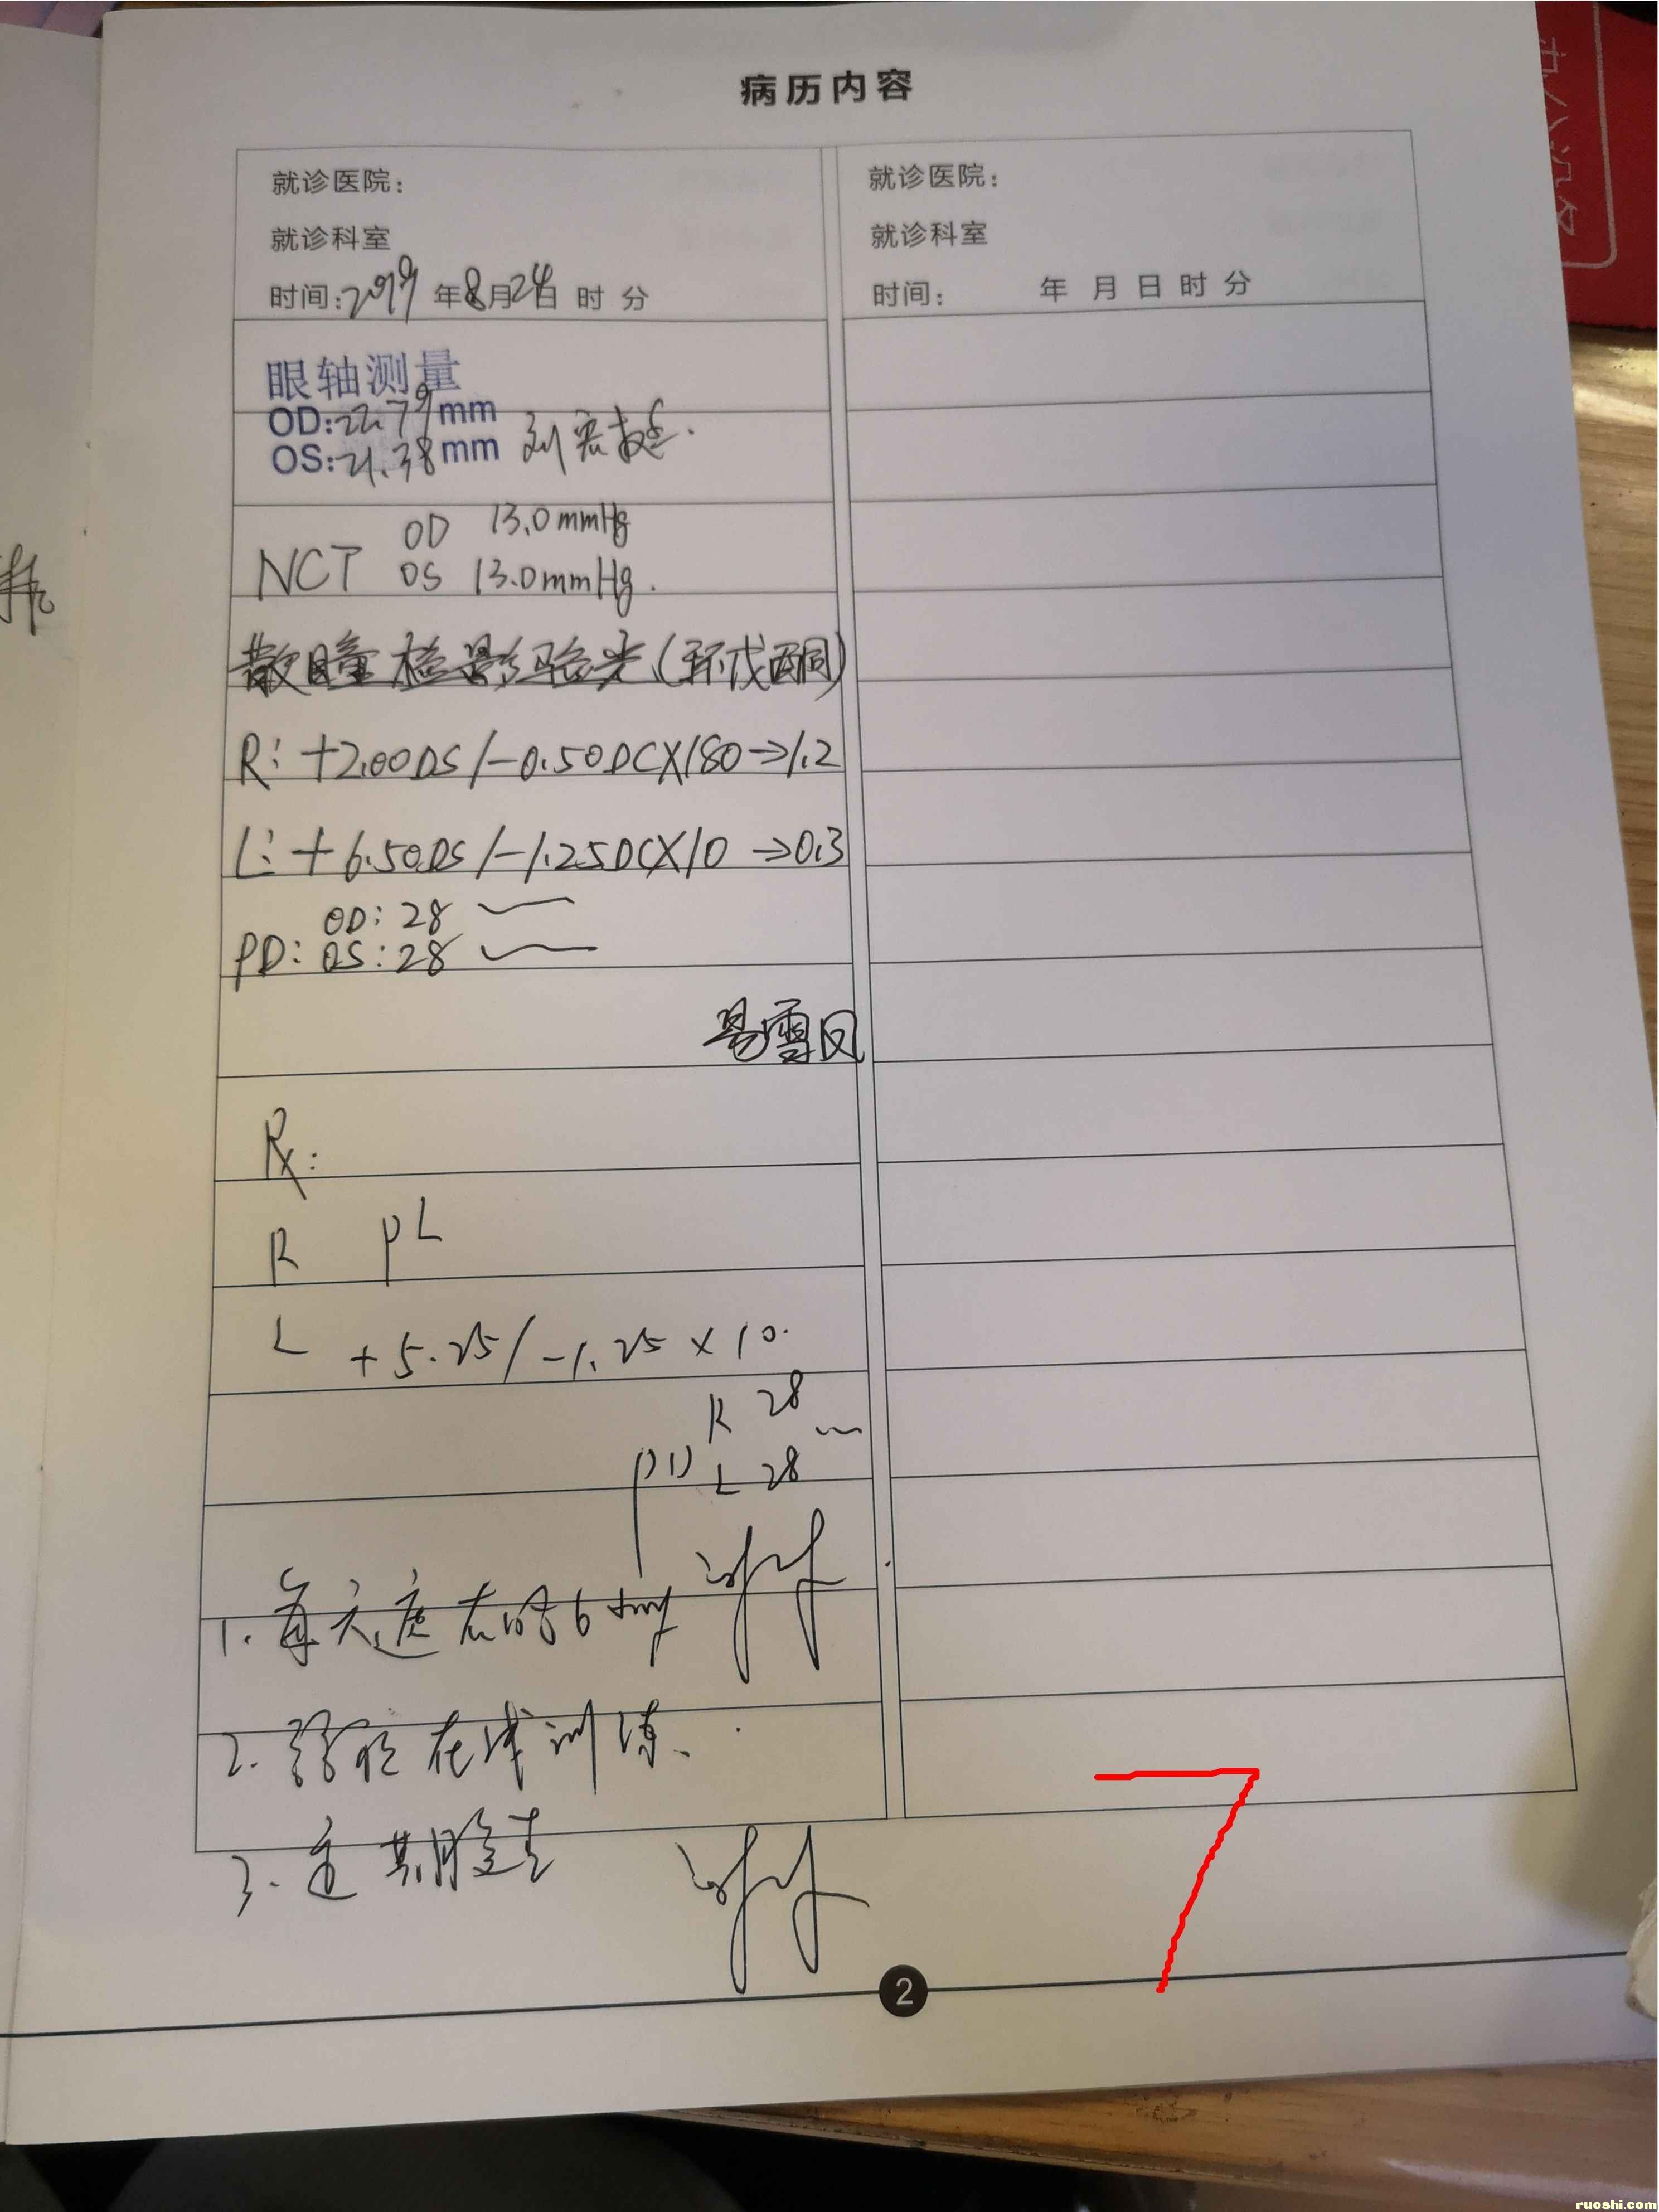 病历内容
就诊医院:
就诊科室
时间:2019年8月24日 时 分
眼轴测量
OD:22.79mm
OS:21.38mm 刘
NCT OD 13.0mmHg
OS 13.0mmHg.
散瞳检影验光(环戊酮)
R: +2.00DS/-0.50DCX180→1.2
L: +6.50DS/-1.25DCX10→0.3
PD: OD: 28
OS: 28
易雪
Rx:
R PL
L +5.25/-1.25×10.
PD R 28
L 28
1. 每天遮右眼6
2. 在线训练.
3. 定期
就诊医院:
就诊科室
时间: 年 月 日 时 分
2
7
ruoshi.com